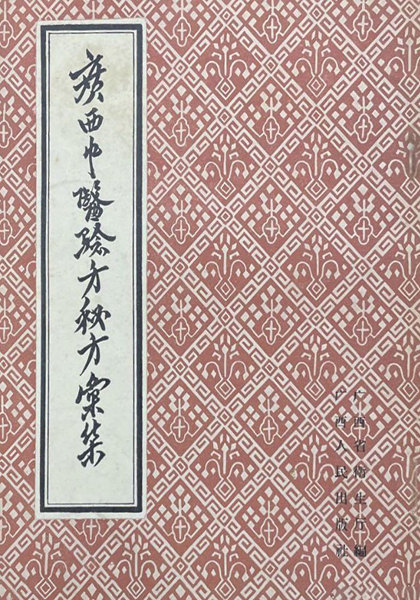 广西中醫驗方秘方彙集
广西省衛生厅編
广西人民出版社